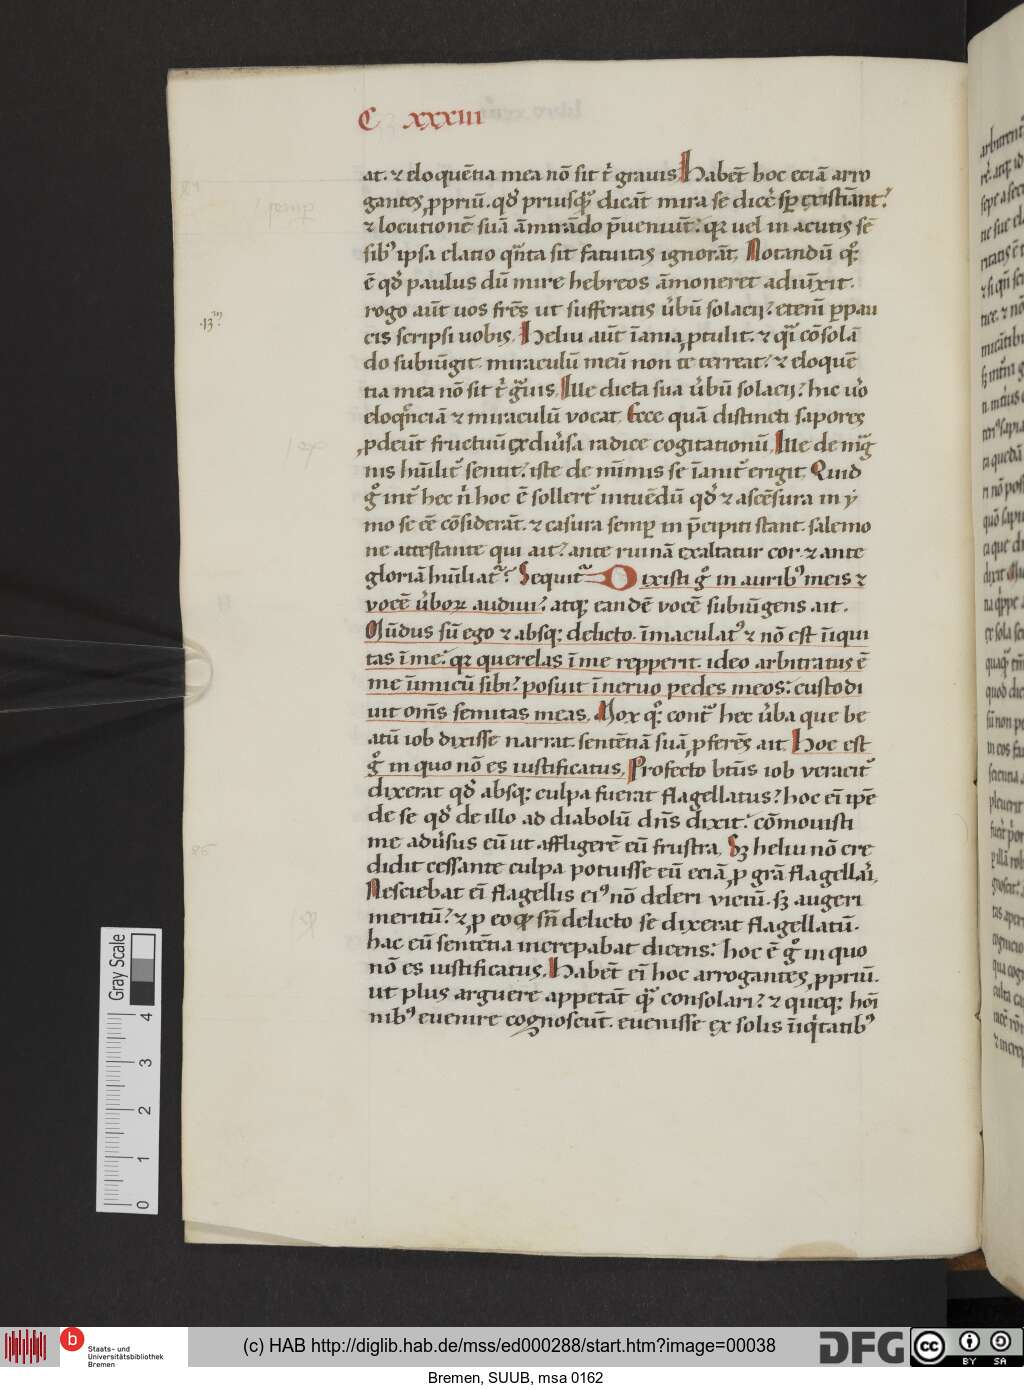 C xxxiii
at. ⁊ eloquētia mea nō sit t̄ grauis Habēt hoc eciā arro
gantes ꝓpriū. qđ priusqͣꝫ dicāt mira se dicē sꝑ existiānt
⁊ locutionē suā āmirādo p̄ueniūt. qꝛ uel in acutis sē
sibꝰ ipsa elatio qͣnta sit fatuitas ignorāt. Notandū qꝫ
ē qđ paulus dū mire hebreos āmoneret adiūxit.
rogo aūt uos frēs ut sufferatis ūbū solacij? etenī ꝑpau
cis scripsi uobis. Heliu aūt īania ꝓtulit. ⁊ qͣi cōsolā
do subiūgit. miraculū meū non te terreat. ⁊ eloquē
tia mea nō sit t̄ gͣuis. Ille dicta sua ūbū solacij? hic uō
eloqͣnciā ⁊ miraculū vocat. Ecce quā distincti sapores
ꝓdeūt fructuū ex diūsa radice cogitationū. Ille de mͣg
nis hūilit sentit? iste de mīmis se īanit erigit. Quid
gͦ int hec n̄ hoc ē sollert intuēdū qđ ⁊ ascēsura in y
mo se eē cōsiderāt. ⁊ casura semꝑ in p̄cipiti stant. salemo
ne attestante qui ait? ante ruinā exaltatur cor. ⁊ ante
gloriā hūiliat. Sequit Dixisti gͦ in auribꝰ meis ⁊
vocē ūboꝝ audiui? atqꝫ eandē vocē subiūgens ait.
Mūdus sū ego ⁊ absqꝫ delicto. īmaculatꝰ ⁊ nō est īiqui
tas ī me. qꝛ querelas ī me repperit. ideo arbitratus ē
me īimicū sibi? posuit ī neruo pedes meos. custodi
uit oms semitas meas. Mox qꝫ cont hec ūba que be
atū iob dixisse narrat. sentētiā suā ꝓferēs ait. Hoc est
gͦ in quo nō es iustificatus. Profecto btūs iob veracit
dixerat qđ absqꝫ culpa fuerat flagellatus? hoc eī ipē
de se qđ de illo ad diabolū dn̄s dixit. cōmouisti
me adūsus eū ut affligerē eū frustra. Sꝫ heliu nō cre
didit cessante culpa potuisse eū eciā ꝓ grā flagellari.
Nesciebat eī flagellis eiꝰ nō deleri viciū. sꝫ augeri
meritū? ⁊ ꝓ eo qꝫ sn̄ delicto se dixerat flagellatū.
hac eū sentētia increpabat dicens. hoc ē gͦ in quo
nō es iustificatus. Habēt eī hoc arrogantes ꝓpriū.
ut plus arguere appetāt qͣꝫ consolari? ⁊ queqꝫ hoī
nibꝰ euenire cognoscūt. euenisse ex solis īiqͥtatibꝰ
Gray Scale
4
3
2
1
0
Staats- und
Universitätsbibliothek
Bremen
(c) HAB http://diglib.hab.de/mss/ed000288/start.htm?image=00038
DFG
cc
BY SA
Bremen, SUUB, msa 0162